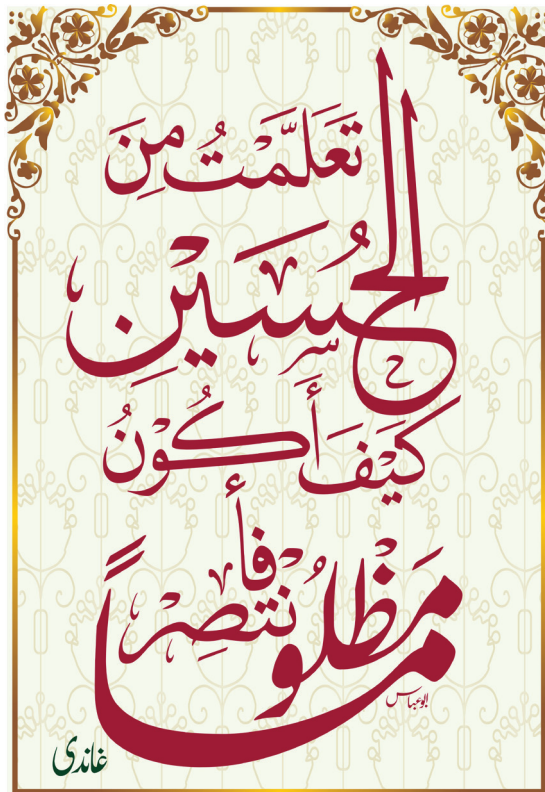 تَعَلَّمْتُ مِنَ
الحُسَيْنِ
كَيْفَ أَكُونُ
مَظْلُومًا فأَنتَصِرْ
ابوعباس
غاندى